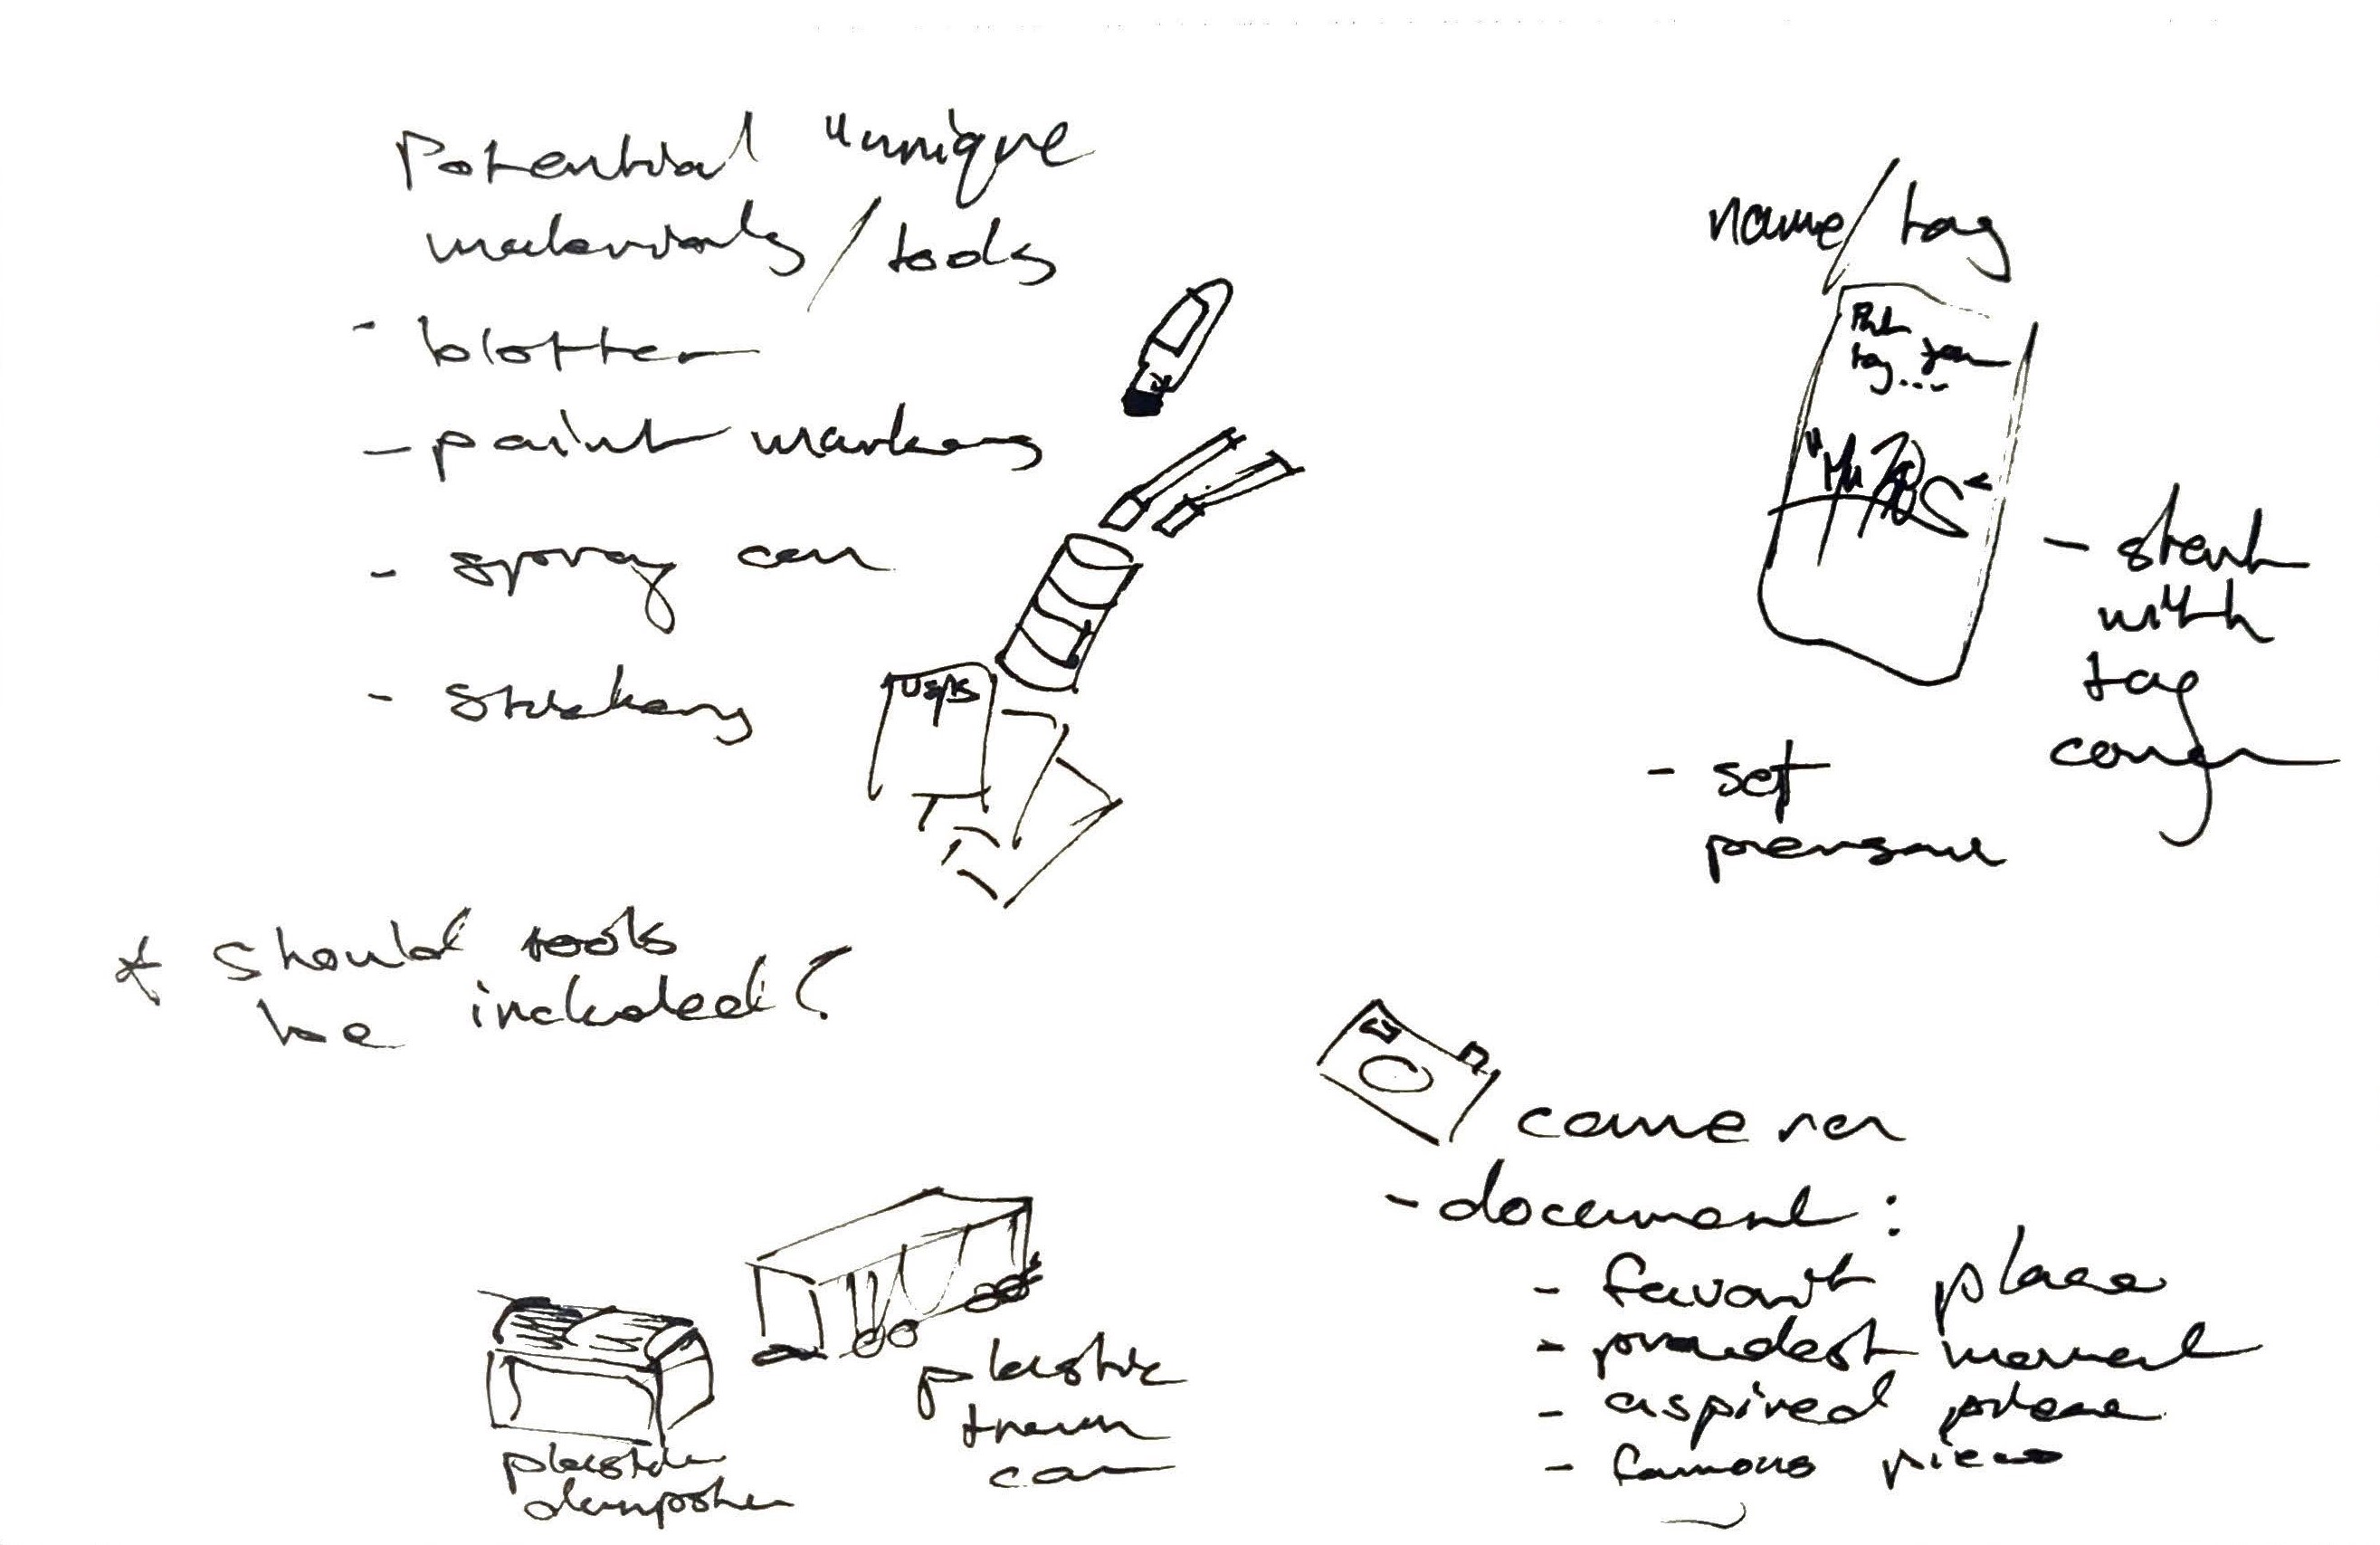 Potential "unique
materials/tools
- blotter
- paint markers
- spray can
- stickers
USPS
* Should tools
be included?
name/tag
Put
tag...
- start
with
tag
- set
camera
- document:
- favorit place
- proudest moment
- aspired place
- famous pieces
plastic
train
car
plastic
dumpster